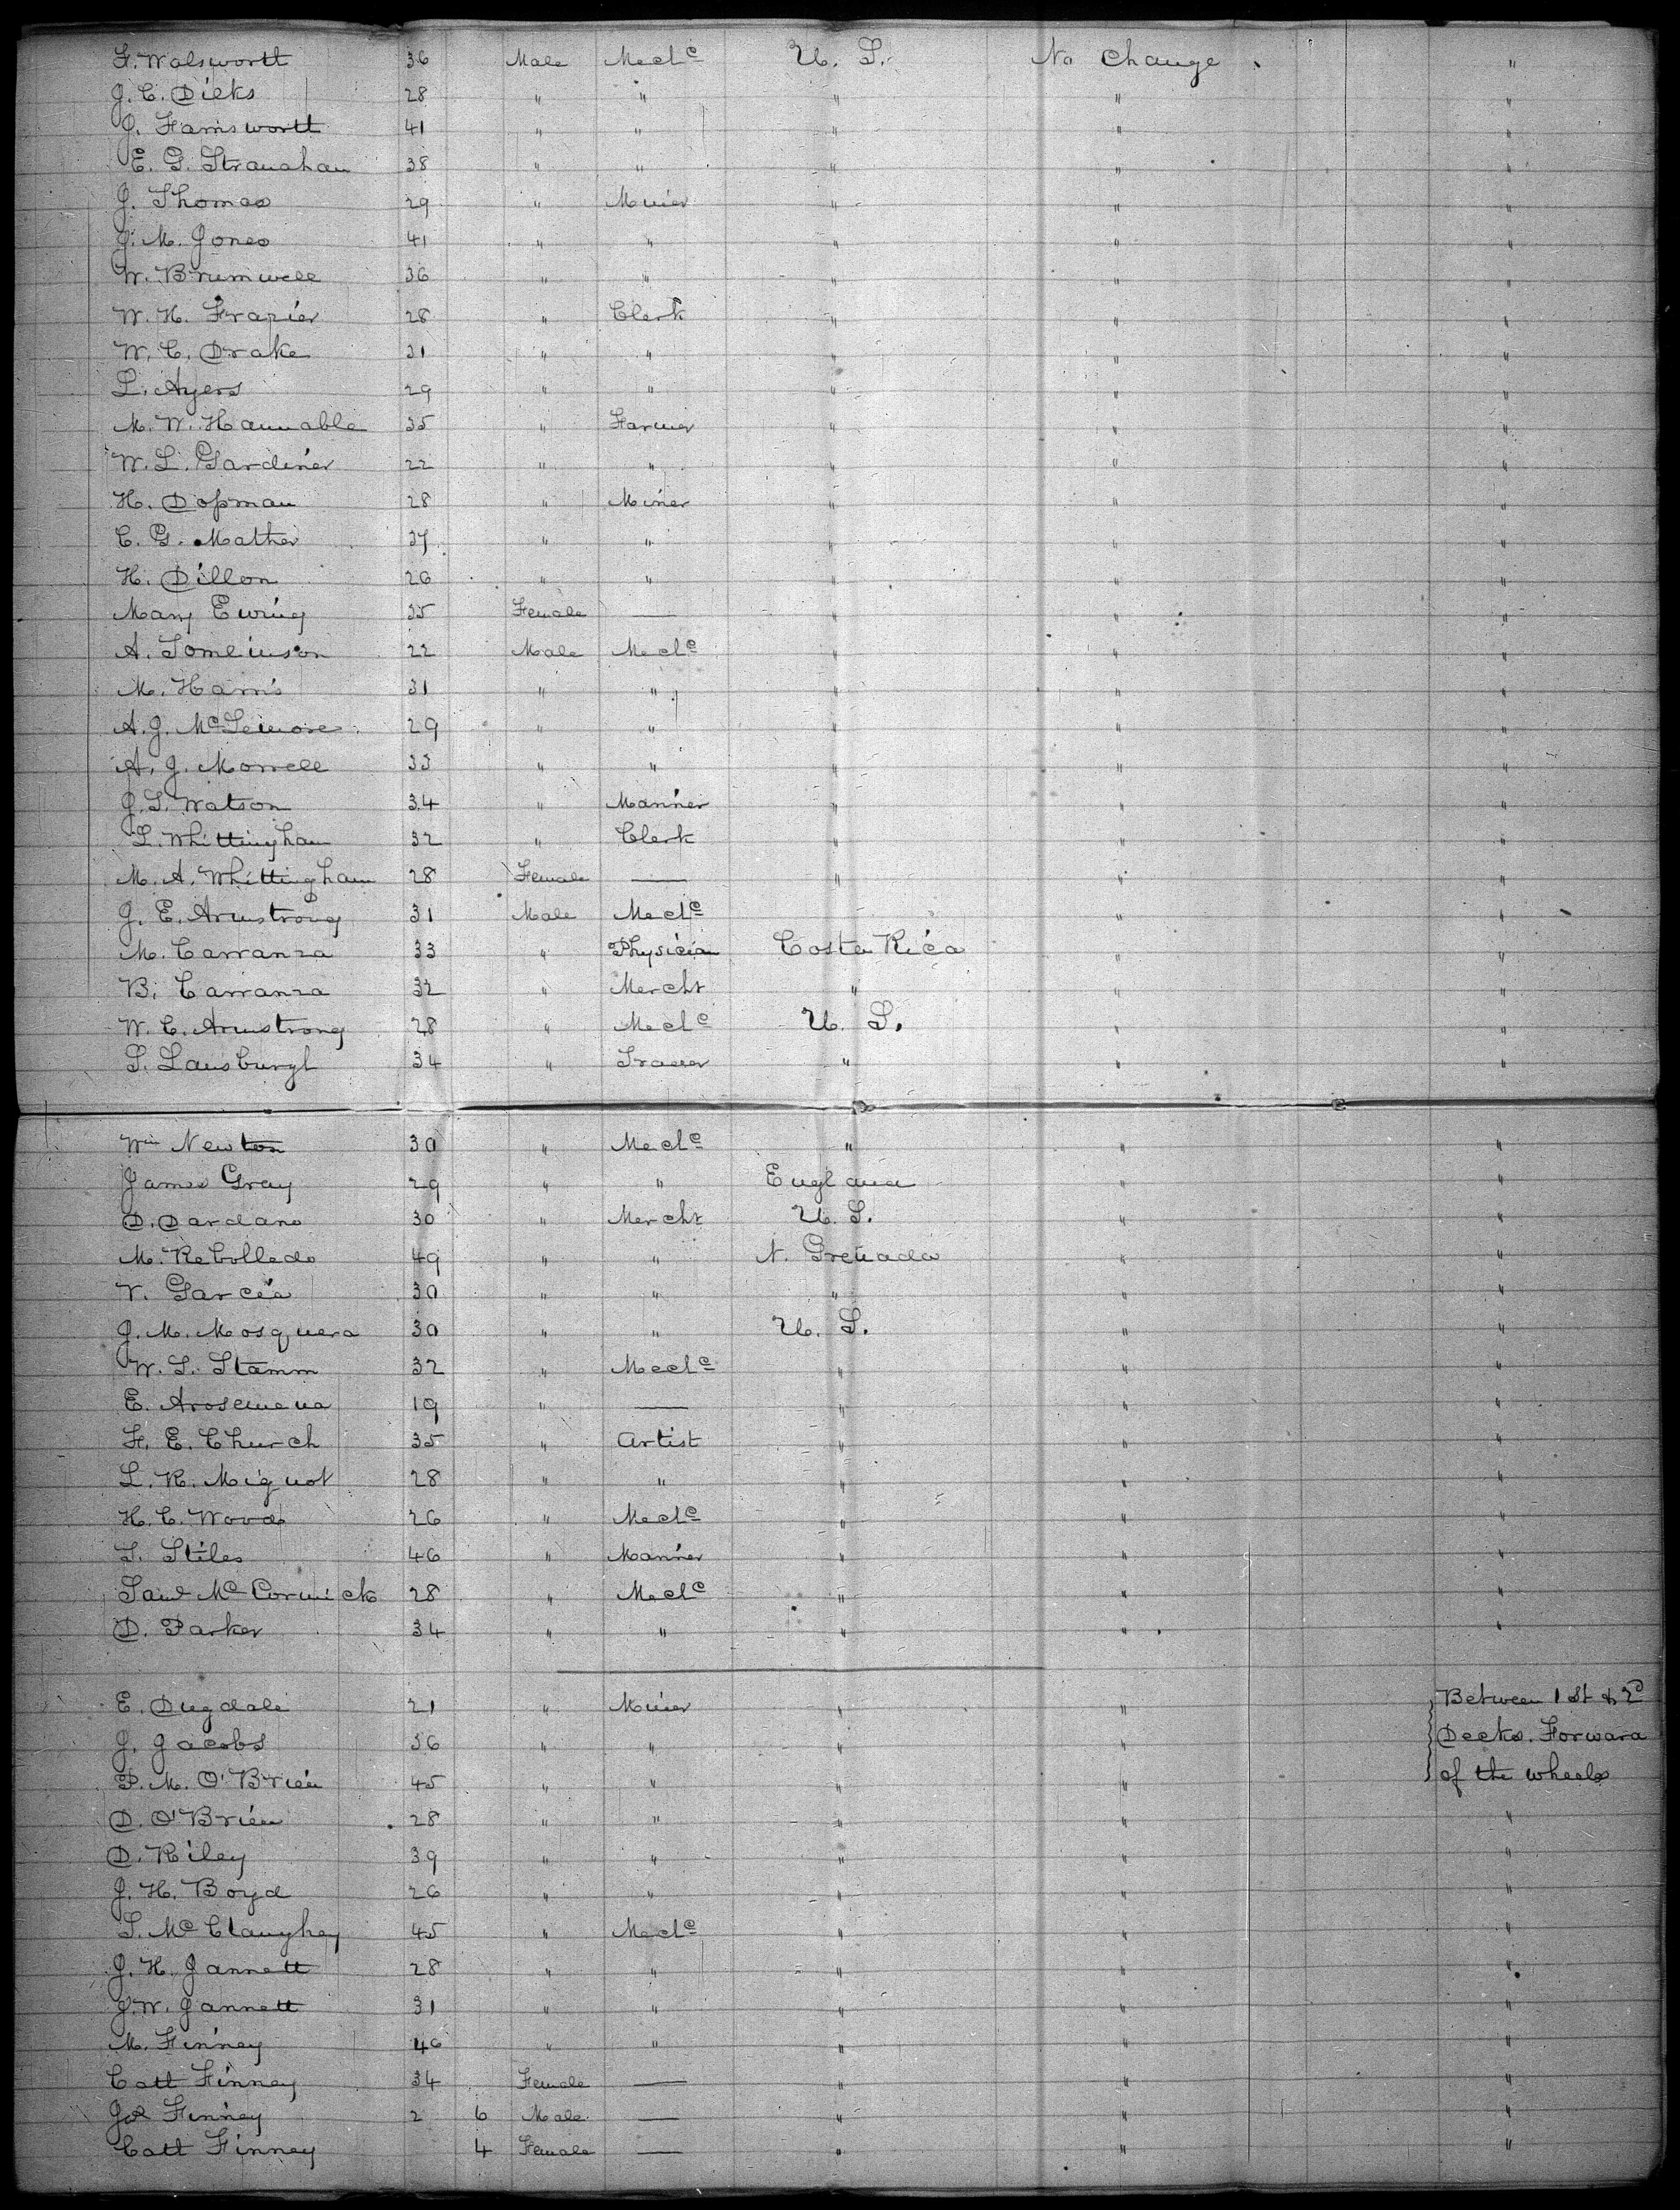 F. Walsworth 36 Male Mech^c U. S. No Change "
J. C. Dicks 28 " " " " "
J. Farnsworth 41 " " " " "
E. G. Stranahan 38 " " " " "
J. Thomas 29 " Miner " " "
J. M. Jones 41 " " " " "
W. Brumwell 36 " " " " "
W. H. Frazier 28 " Clerk " " "
W. C. Drake 31 " " " " "
L. Ayers 29 " " " " "
M. W. Hannable 35 " Farmer " " "
W. L. Gardiner 22 " " " " "
H. Dopman 28 " Miner " " "
C. G. Mather 37 " " " " "
H. Dillon 26 " " " " "
Mary Ewing 35 Female — " " "
A. Tomlinson 22 Male Mech^c " " "
M. Harris 31 " " " " "
A. J. McLemore 29 " " " " "
A. J. Morrell 33 " " " " "
J. S. Watson 34 " Mariner " " "
L. Whittingham 32 " Clerk " " "
M. A. Whittingham 28 Female — " " "
J. E. Armstrong 31 Male Mech^c " "
M. Carranza 33 " Physician Costa Rica " "
B. Carranza 32 " Mercht " " "
W. C. Armstrong 28 " Mech^c U. S. " "
S. Lansburgh 34 " Trader " " "
Wm Newton 30 " Mech^c " " "
James Gray 29 " " England " "
D. Dardano 30 " Mercht U. S. " "
M. Rebolledo 49 " " N. Grenada " "
V. Garcia 30 " " " " "
J. M. Mosquera 30 " " U. S. " "
W. S. Stamm 32 " Mech^c " " "
E. Arosemena 19 " — " " "
F. E. Church 35 " Artist " " "
L. R. Mignot 28 " " " " "
H. C. Woods 26 " Mech^c " " "
S. Stiles 46 " Mariner " " "
Saml McCormick 28 " Mech^c " " "
D. Parker 34 " " " " "
E. Dugdale 21 " Miner " " Between 1st & 2d
J. Jacobs 36 " " " " Decks. Forward
P. M. O'Brien 45 " " " " of the wheels
D. O'Brien 28 " " " " "
D. Riley 39 " " " " "
J. H. Boyd 26 " " " " "
S. McClaughey 45 " Mech^c " " "
J. H. Jannett 28 " " " " "
J. W. Jannett 31 " " " " "
M. Finney 46 " " " " "
Catt Finney 34 Female — " " "
Finney 2 6 Male — " " "
Catt Finney 4 Female — " " "